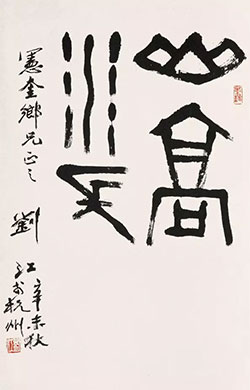 山高
水長
憲奎鄉兄正之 劉江
辛未秋
於杭州